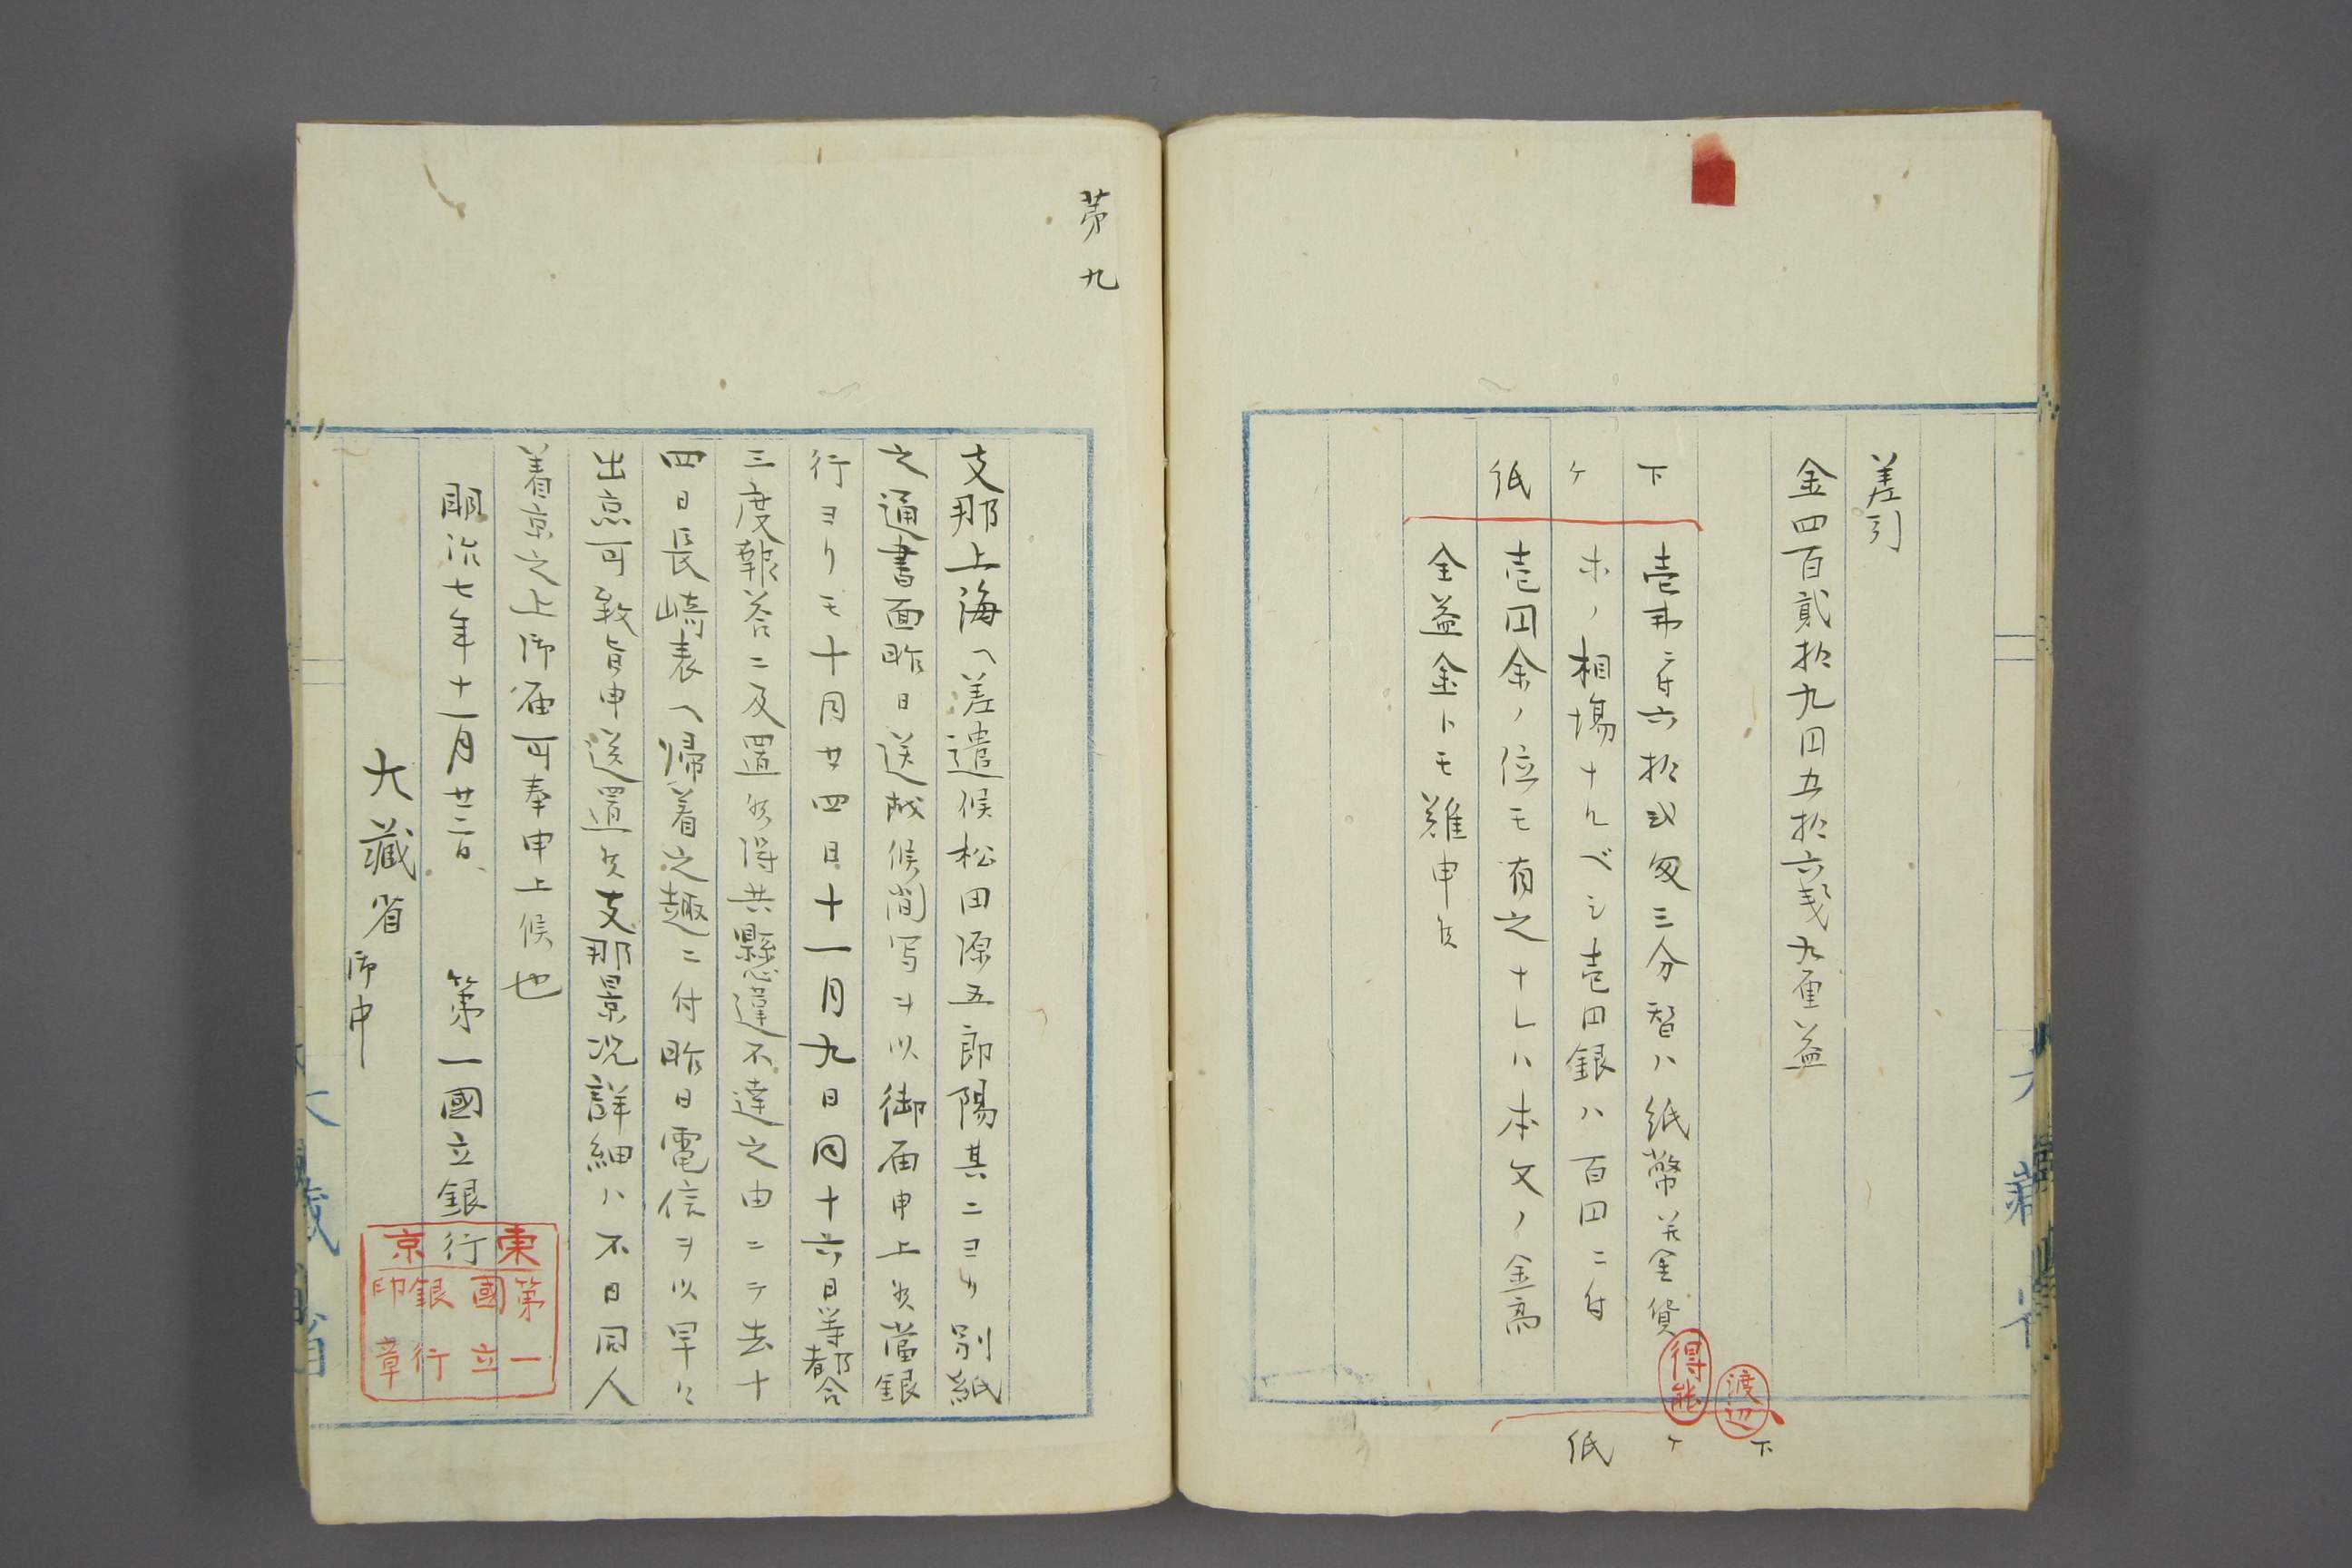 差引
金四百貳拾九円五拾六錢九厘益
下ケ紙
壱弗ニ付六拾弐匁三分替ハ紙幣並金貨
ホノ相場ナルベシ壱円銀ハ百円ニ付
壱円余ノ位モ有之ナレハ本文ノ金高
全益金トモ難申候
得能
渡辺
下ケ紙
第九
支那上海ヘ差遣候松田源五郎陽其二ヨリ別紙
之通書面昨日送越候間写ヲ以御届申上候當銀
行ヨリモ十月廿四日十一月九日同十六日等都合
三度報答ニ及置候得共懸違不達之由ニテ去十
四日長崎表ヘ帰着之趣ニ付昨日電信ヲ以早々
出京可致旨申送置候支那景况詳細ハ不日同人
着京之上御届可奉申上候也
明治七年十一月廿二日
第一國立銀行
東京第一國立銀行印章
大藏省御中
大藏省